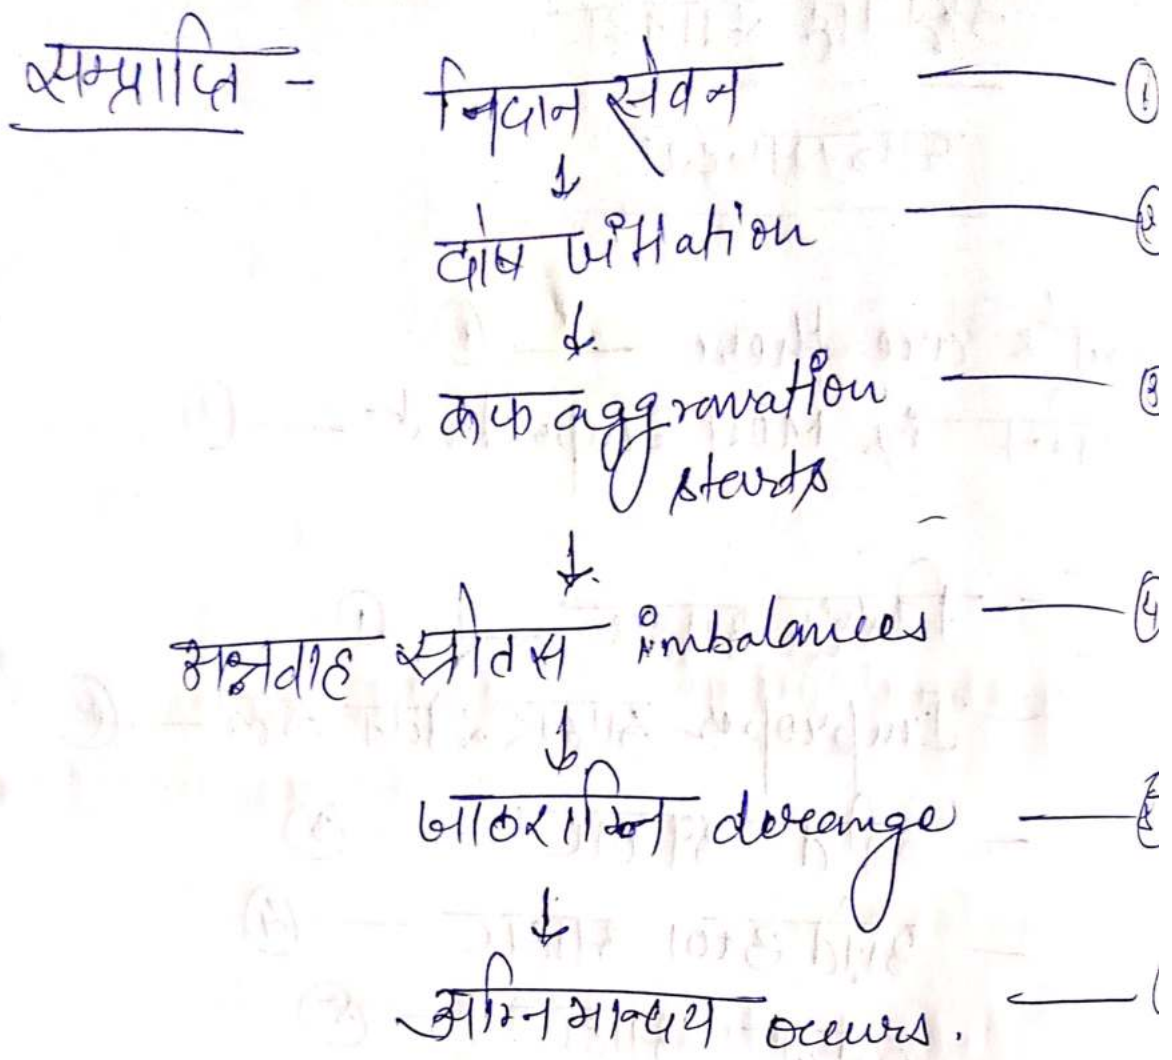 सम्प्राप्ति -
निदान सेवन —— ①
↓
दोष vitiation —— ②
↓
कफ aggravation —— ③
starts
↓
अन्नवाह स्रोतस imbalances —— ④
↓
जाठराग्नि derange —— ⑤
↓
अग्निमान्धय occurs. ——